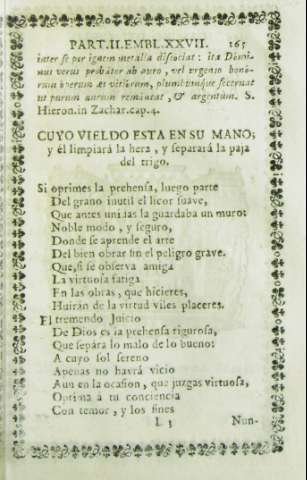 PART.II.EMBL.XXVII. 165
inter se per ignem metalla dissociat: ita Domi-
nus verus probator ab auro, vel argento bono-
rum operum æs vitiorum, plumbumque secernat
ut purum aurum remaneat, & argentum. S.
Hieron.in Zachar.cap.4.
CUYO VIELDO ESTA EN SU MANO;
y èl limpiarà la hera, y separarà la paja
del trigo.
Si oprimes la prehensa, luego parte
Del grano inutil el licor suave,
Que antes unidas la guardaba un muro:
Noble modo, y seguro,
Donde se aprende el arte
Del bien obrar sin el peligro grave.
Que, si se observa amiga
La virtuosa fatiga
En las obras, que hicieres,
Huiràn de la virtud viles placeres.
El tremendo Juicio
De Dios es la prehensa rigurosa,
Que sepàra lo malo de lo bueno:
A cuyo sol sereno
Apenas no havrà vicio
Aun en la ocasion, que juzgas virtuosa,
Oprima à tu conciencia
Con temor, y los fines
L 3 Nun-